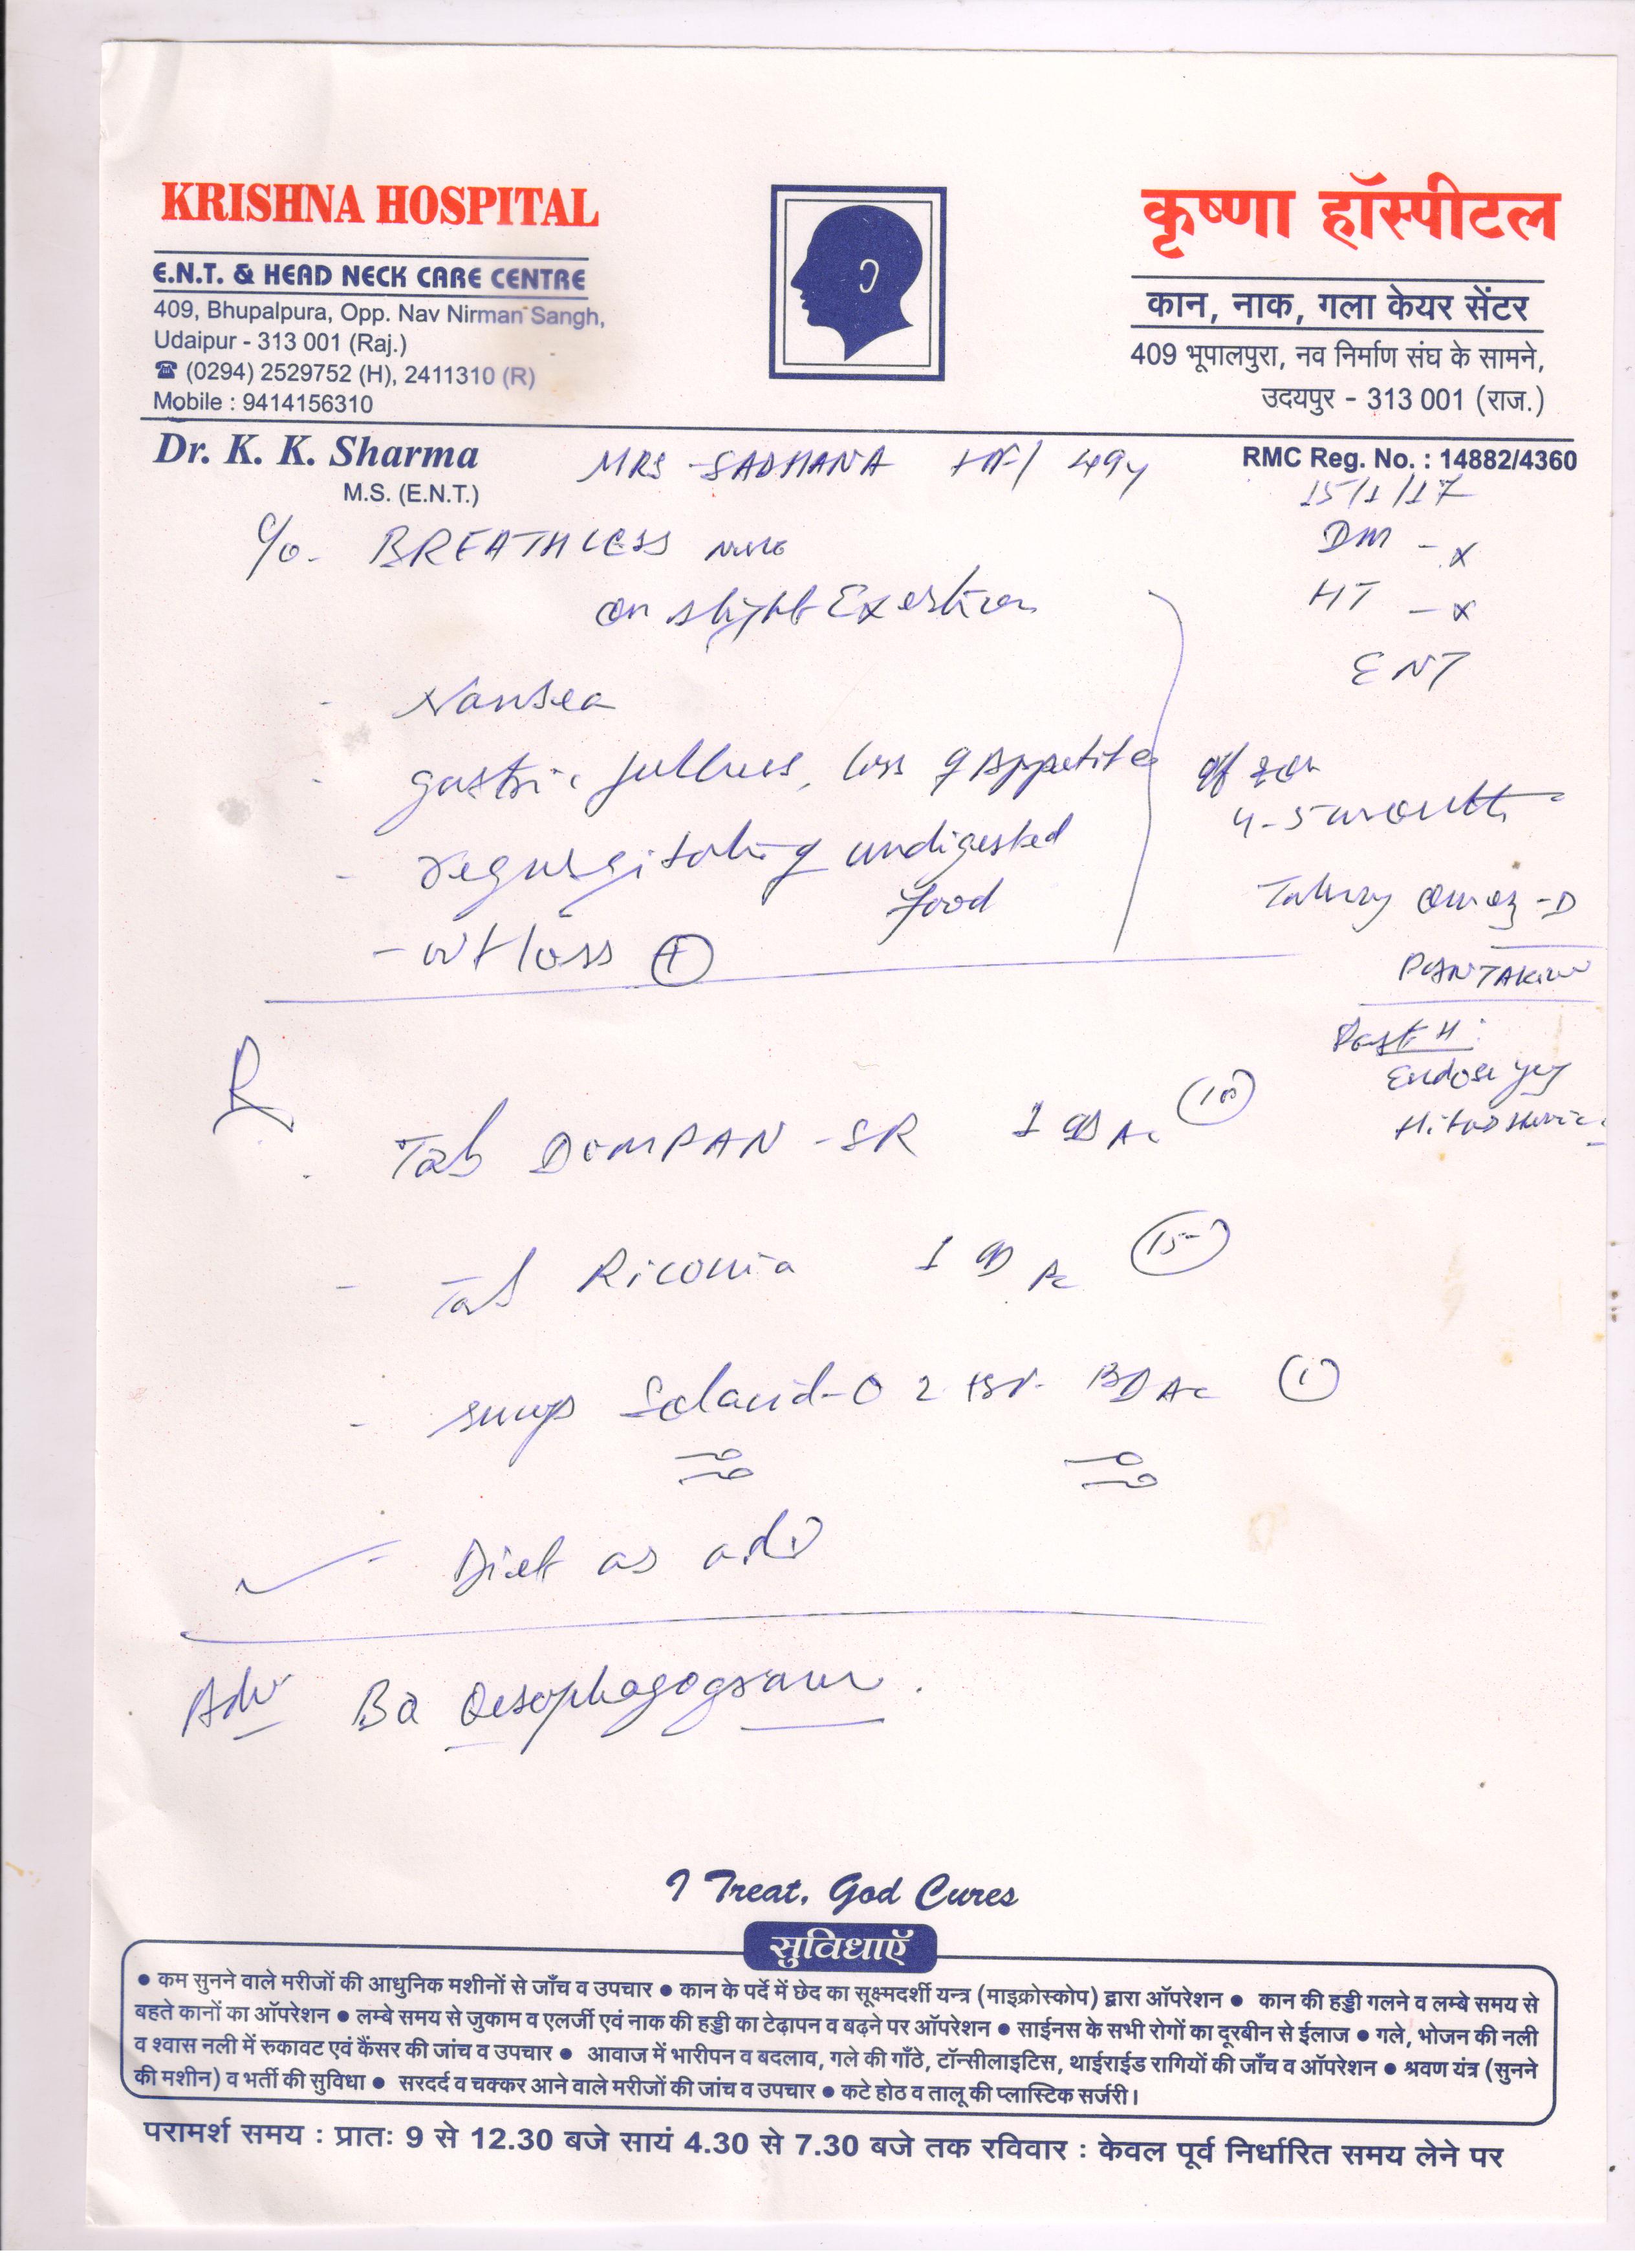 KRISHNA HOSPITAL
E.N.T. & HEAD NECK CARE CENTRE
409, Bhupalpura, Opp. Nav Nirman Sangh,
Udaipur - 313 001 (Raj.)
☎ (0294) 2529752 (H), 2411310 (R)
Mobile : 9414156310
कृष्णा हॉस्पीटल
कान, नाक, गला केयर सेंटर
409 भूपालपुरा, नव निर्माण संघ के सामने,
उदयपुर - 313 001 (राज.)
Dr. K. K. Sharma
M.S. (E.N.T.)
MRS SADHANA 49y
RMC Reg. No. : 14882/4360
15/1/17
DM - x
HT - x
ENT
c/o - BREATHLESS
on slight Exertion
- Nausea
- gastric fullness, loss of Appetite
4-5 months
- regurgitating undigested
food
- wt loss +
Taking Omez-D
Past H:
R
- Tab DOMPAN-SR 1 OD Ac 10
- Tab Riconia 1 OD Pc 15
- syrup 2 BD Ac 1
- Diet as adv
Adv Ba Oesophagogram.
I Treat, God Cures
सुविधाएँ
● कम सुनने वाले मरीजों की आधुनिक मशीनों से जाँच व उपचार ● कान के पर्दे में छेद का सूक्ष्मदर्शी यन्त्र (माइक्रोस्कोप) द्वारा ऑपरेशन ● कान की हड्डी गलने व लम्बे समय से
बहते कानों का ऑपरेशन ● लम्बे समय से जुकाम व एलर्जी एवं नाक की हड्डी का टेढ़ापन व बढ़ने पर ऑपरेशन ● साईनस के सभी रोगों का दूरबीन से ईलाज ● गले, भोजन की नली
व श्वास नली में रुकावट एवं कैंसर की जांच व उपचार ● आवाज में भारीपन व बदलाव, गले की गाँठे, टॉन्सीलाइटिस, थाईराईड रागियों की जाँच व ऑपरेशन ● श्रवण यंत्र (सुनने
की मशीन) व भर्ती की सुविधा ● सरदर्द व चक्कर आने वाले मरीजों की जांच व उपचार ● कटे होठ व तालू की प्लास्टिक सर्जरी।
परामर्श समय : प्रातः 9 से 12.30 बजे सायं 4.30 से 7.30 बजे तक रविवार : केवल पूर्व निर्धारित समय लेने पर